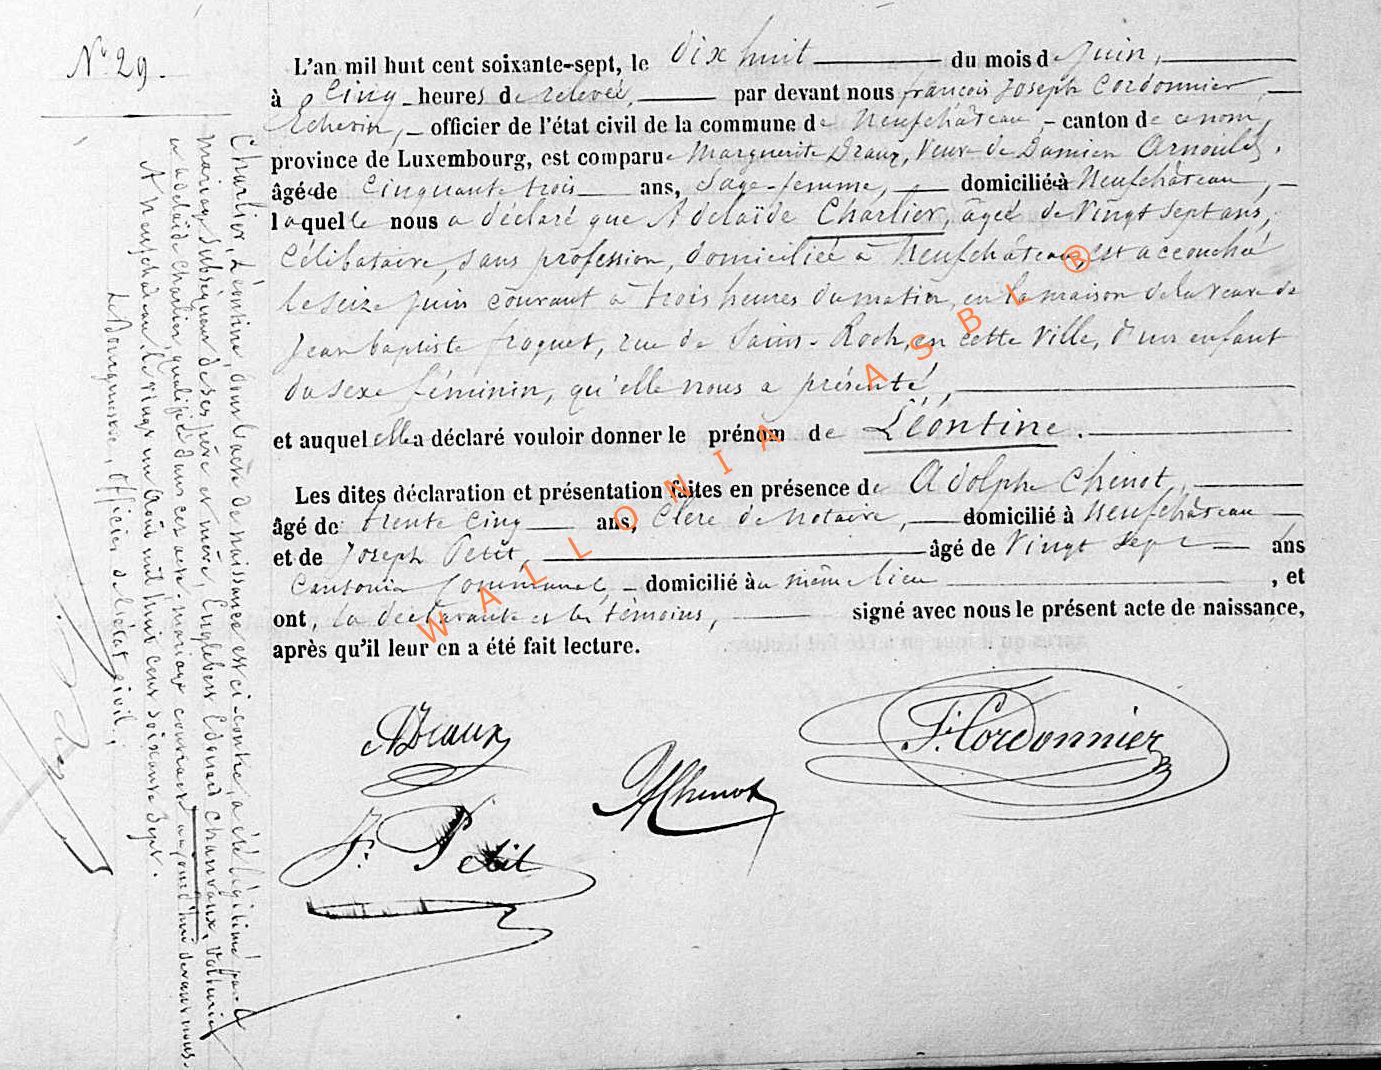 N° 29.
L'an mil huit cent soixante-sept, le dix huit du mois de juin,
à cinq heures de relevée, par devant nous françois Joseph Cordonnier,
Echevin, officier de l'état civil de la commune de Neufchâteau, canton de ce nom,
province de Luxembourg, est comparue Marguerite Draux, Veuve de Damien Arnould,
âgée de cinquante trois ans, Sage-femme, domiciliée à Neufchâteau,
laquelle nous a déclaré que Adelaïde Charlier, âgée de vingt sept ans,
célibataire, sans profession, domiciliée à Neufchâteau, est accouchée
le seize juin courant à trois heures du matin, en la maison de la veuve de
Jean baptiste fraquet, rue de Saint-Roch, en cette Ville, d'un enfant
du sexe féminin, qu'elle nous a présenté,
et auquel elle a déclaré vouloir donner le prénom de Léontine.
Les dites déclaration et présentation faites en présence de Adolphe Chenot,
âgé de trente cinq ans, Clerc de Notaire, domicilié à Neufchâteau
et de Joseph Petit, âgé de Vingt sept ans
Cantonier Communal, domicilié au même lieu, et
ont, la déclarante et les témoins, signé avec nous le présent acte de naissance,
après qu'il leur en a été fait lecture.
MDraux
F. Cordonnier
AChenot
J. Petit
Charlier, Léontine, dont l'acte de naissance est ci-contre, a été légitimée par le
mariage subséquent de ses père et mère, Englebert Edouard Chanvaux, Voiturier
et adelaïde Charlier, qualifiés dans cet acte-mariage contracté aujourd'hui devant nous.
A Neufchâteau, le vingt un Août mil huit cent soixante Sept.
Le Bourgmestre, Officier de l'état civil,
WALLONIA ASBL ®